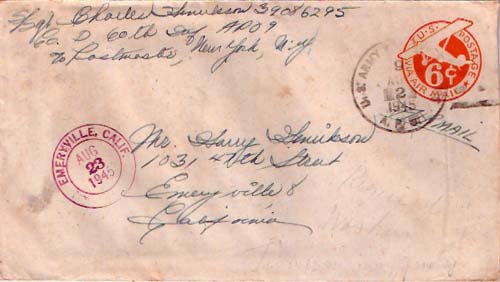 S/Sgt Charles Henrikson 39086295
Co. D 60th Inf APO 9
℅ Postmaster, New York, N.Y.
U.S. POSTAGE
VIA AIR MAIL
6¢
U.S. ARMY
AUG
2
1945
A.P.O.
EMERYVILLE, CALIF.
AUG
23
1945
Mr. Harry Henrikson
1031 47th Street
Emeryville 8
California